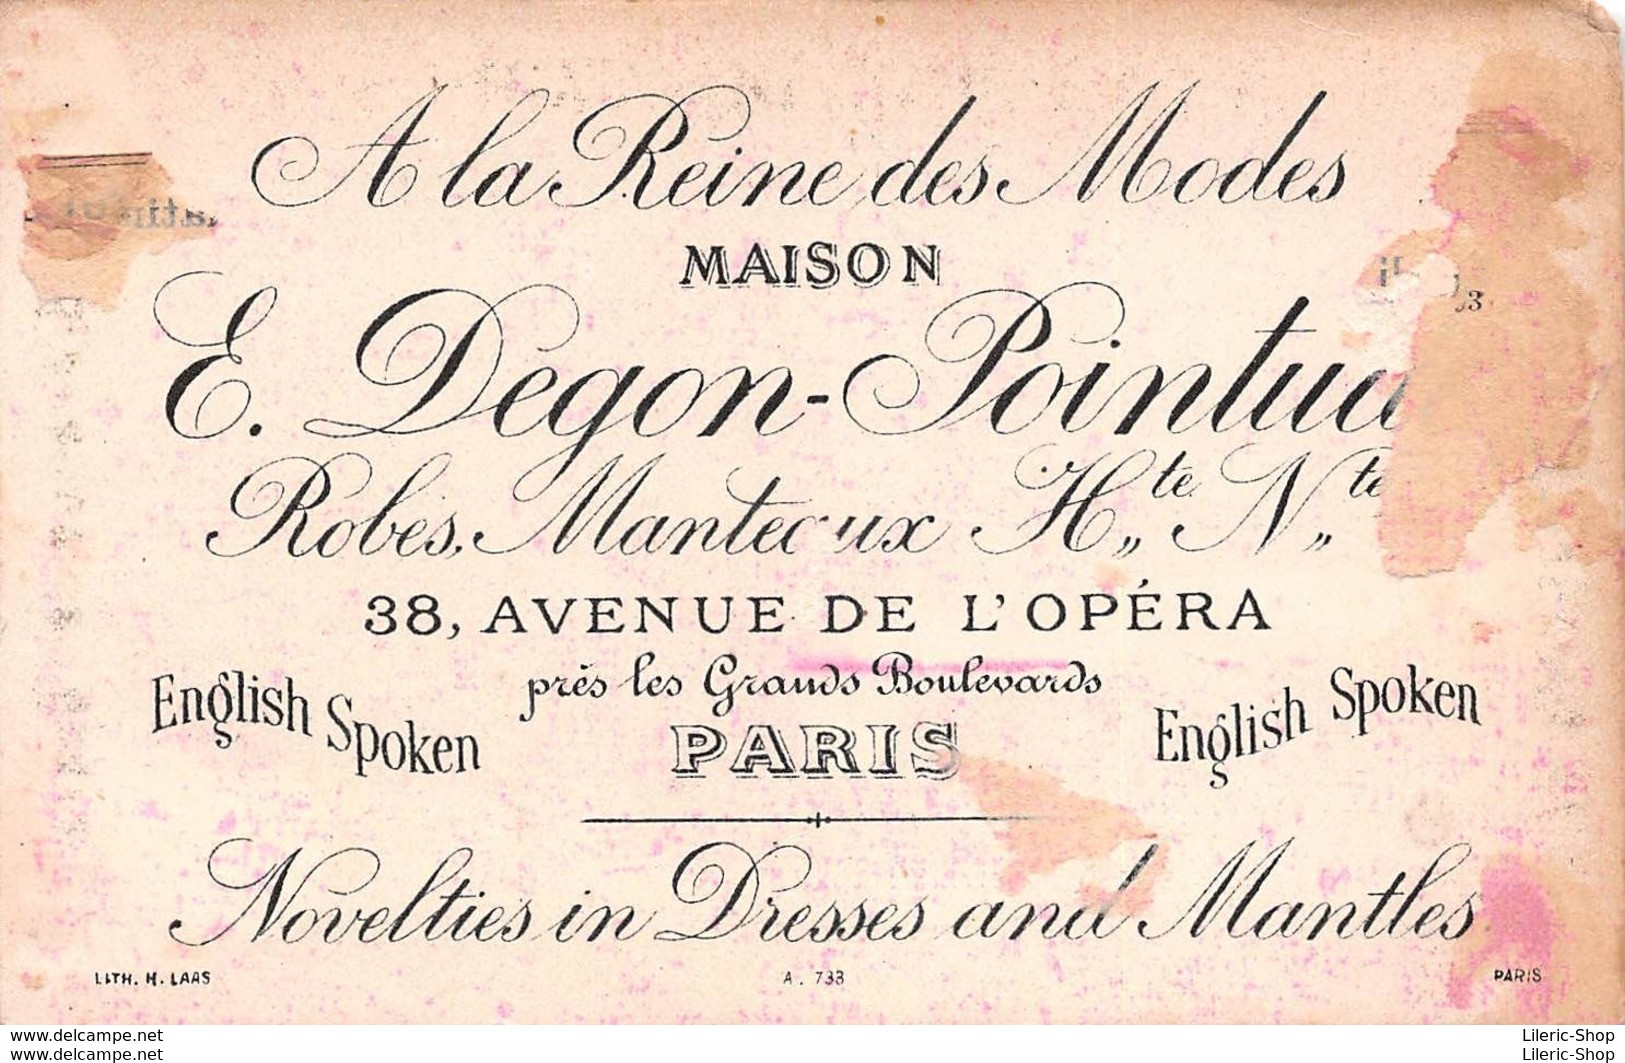 A la Reine des Modes
MAISON
E. Degon-Pointu
Robes, Manteaux Hte Nte
38, AVENUE DE L'OPÉRA
près les Grands Boulevards
English Spoken
PARIS
English Spoken
Novelties in Dresses and Mantles
LITH. H. LAAS
A. 733
PARIS
www.delcampe.net
Lileric-Shop
www.delcampe.net
Lileric-Shop